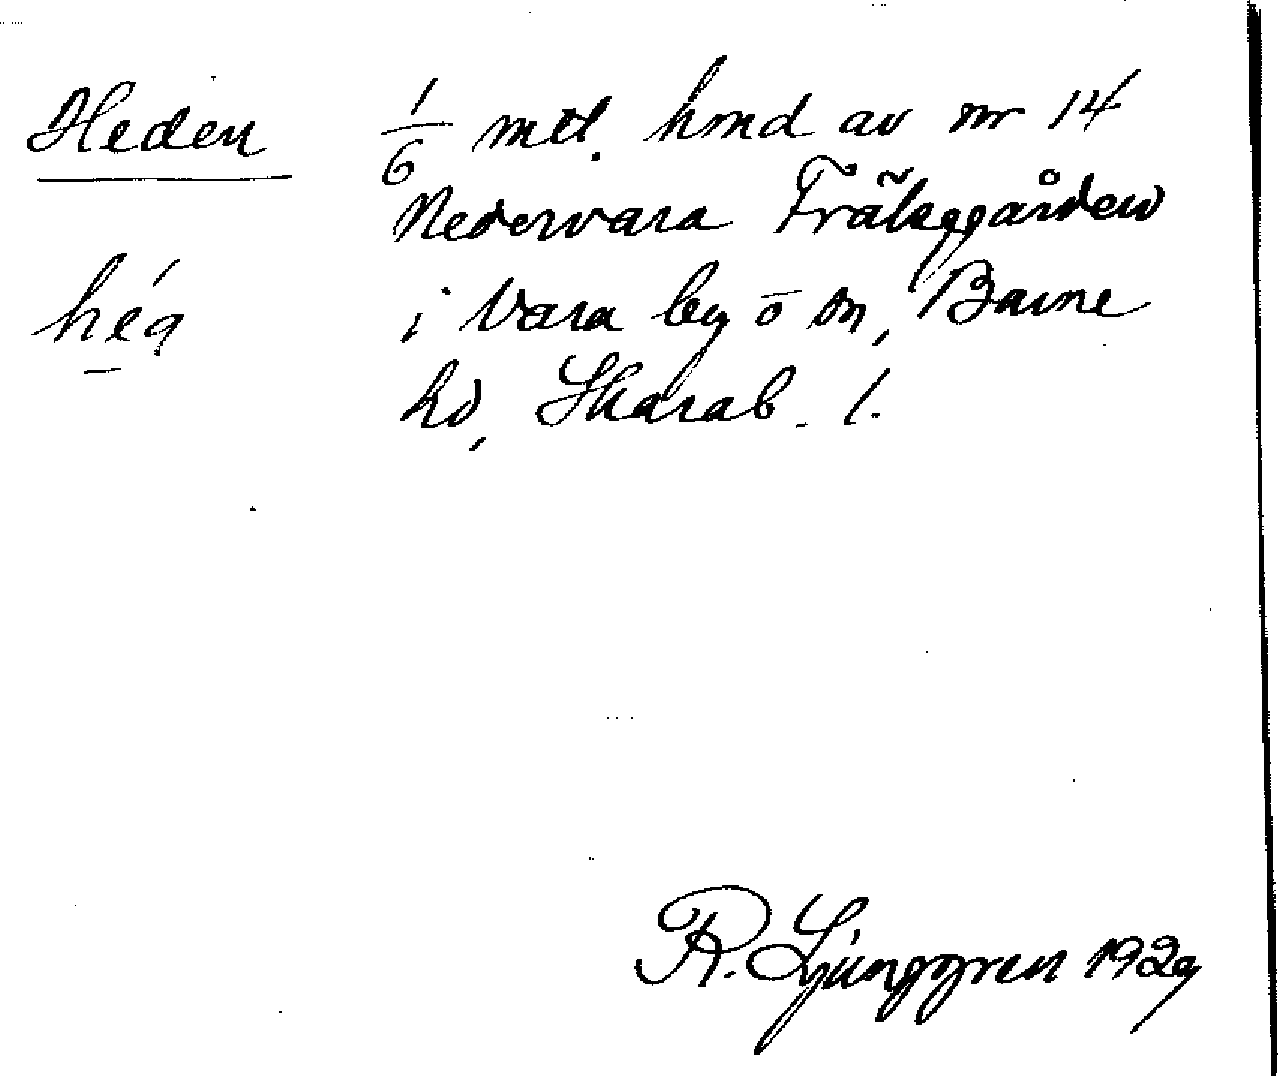 Heden 1/6 mtl. hmd av nr 14
Nedervara Frälseggården
héa i Vara by o sn, Barne
hd, Skarab. l.
R. Ljunggren 1929